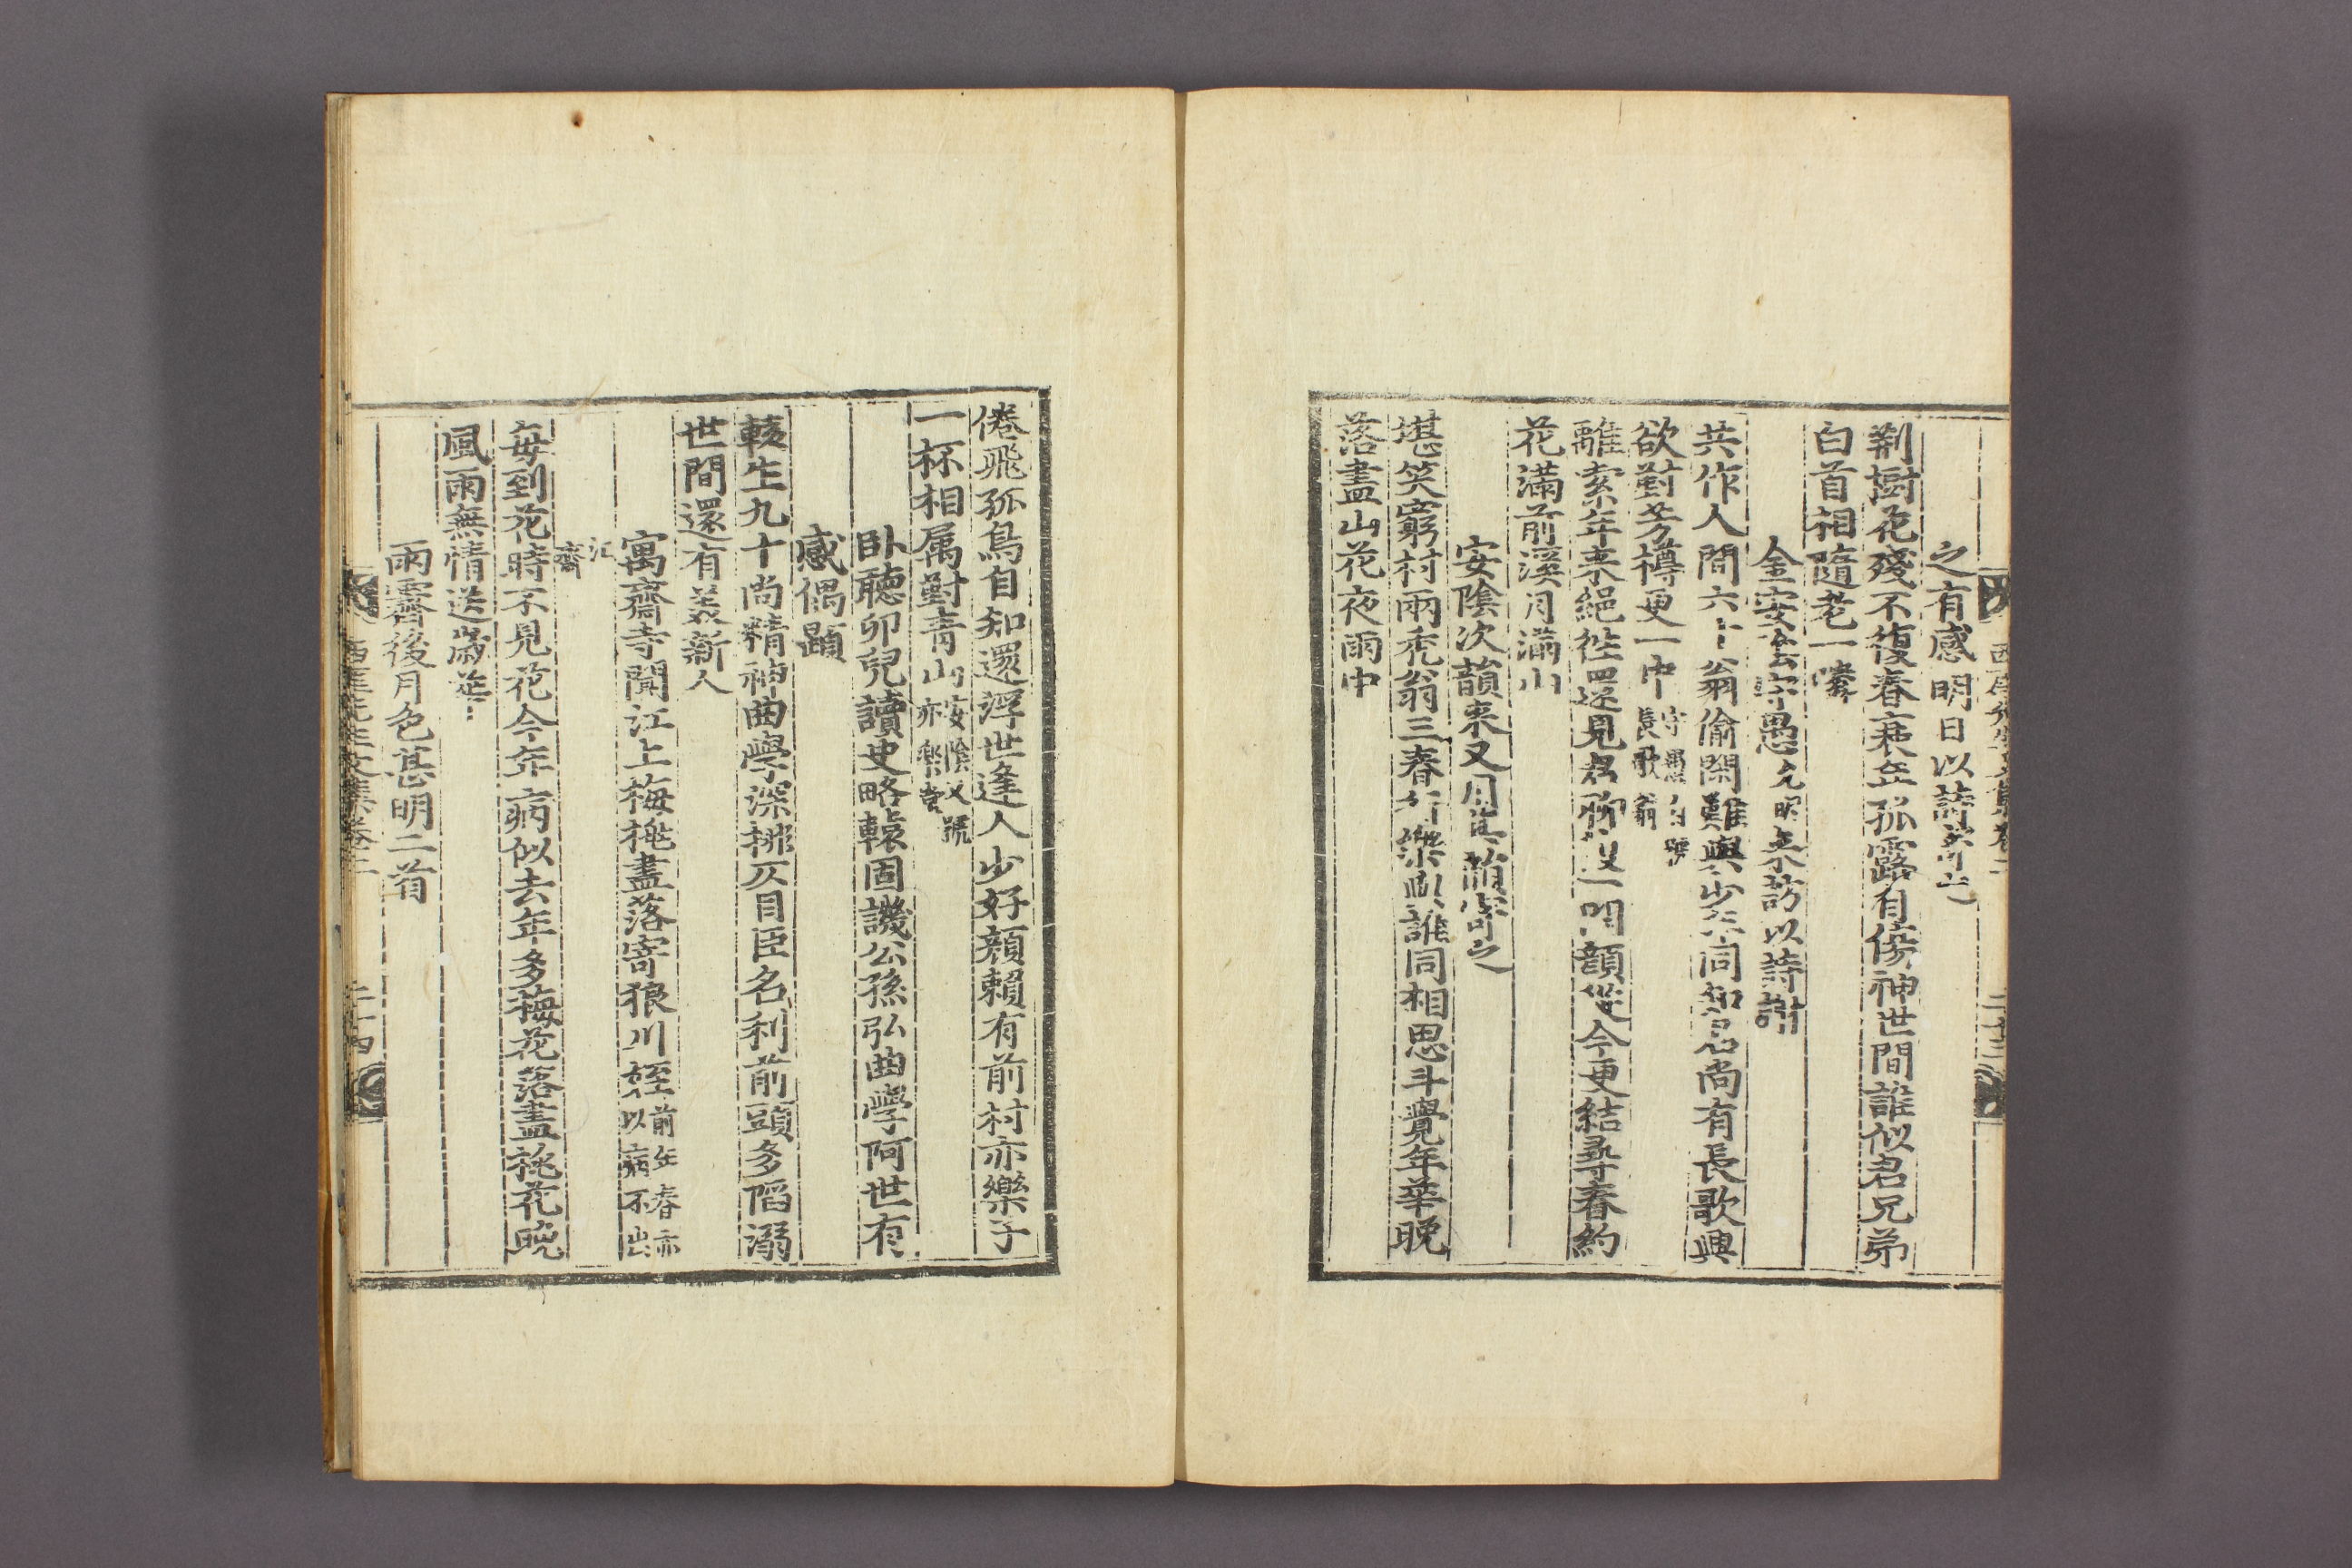 之有感明日以詩寄之
荆樹花殘不復春衰年孤露有傷神世間誰似君兄弟
白首相隨老一
金安陰守愚允明來訪以詩謝
共作人間六十翁偷閑難與少年同知君尚有長歌興
欲對芳樽更一中守愚自號長歌翁
離索年來絕往還見君聊復一開顔從今更結尋春約
花滿前溪月滿山
安陰次韻來又用其韻寄之
堪笑窮村兩禿翁三春行樂與誰同相思斗覺年華晚
落盡山花夜雨中
倦飛孤鳥自知還浮世逢人少好顔賴有前村亦樂子
一杯相属對青山安陰又號亦樂堂
臥聽卯兒讀史略轅固譏公孫弘曲學阿世有
感偶題
轅生九十尚精神曲學深排仄目臣名利前頭多陷溺
世間還有羨新人
寓齋寺聞江上梅桃盡落寄狼川姪前年春亦以病不出
江齋
每到花時不見花今年病似去年多梅花落盡桃花晩
風雨無情送歲華
雨霽後月色甚明二首
西厓先生文集卷二
二十四